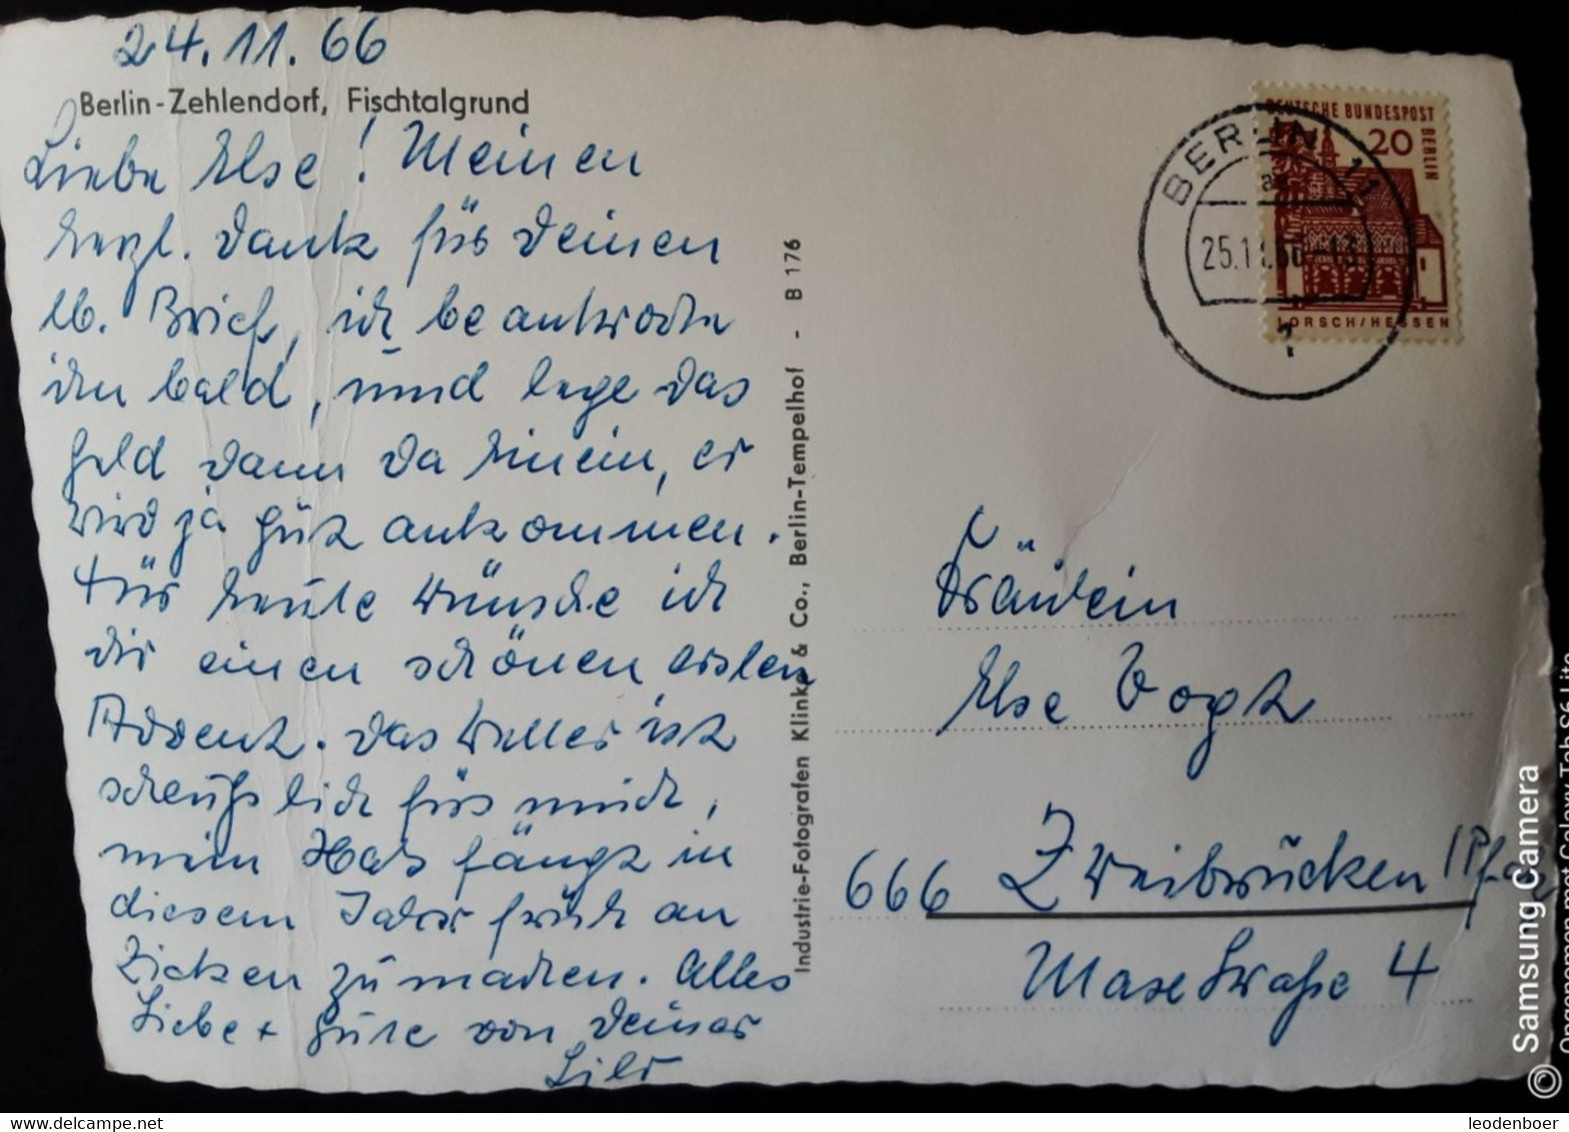 24.11.66
Berlin-Zehlendorf, Fischtalgrund
Liebe Else! Meinen
herzl. Dank für Deinen
lb. Brief, ich beantworte
ihn bald, und lege das
Geld dann da hinein, er
wird ja gut ankommen.
Für heute wünsche ich
Dir einen schönen ersten
Advent. Das Wetter ist
scheußlich für mich,
mein Hals fängt in
diesem Jahr früh an
Zicken zu machen. Alles
Liebe + Gute von Deiner
Industrie-Fotografen Klinke & Co., Berlin-Tempelhof - B 176
DEUTSCHE BUNDESPOST
BERLIN
20
LORSCH/HESSEN
BERLIN 11
25.11.66 -13
Fräulein
Else Vogt
666 Zweibrücken /Pfalz
Maxstraße 4
© Samsung Camera
Opgenomen met Galaxy Tab S6 Lite
leodenboer